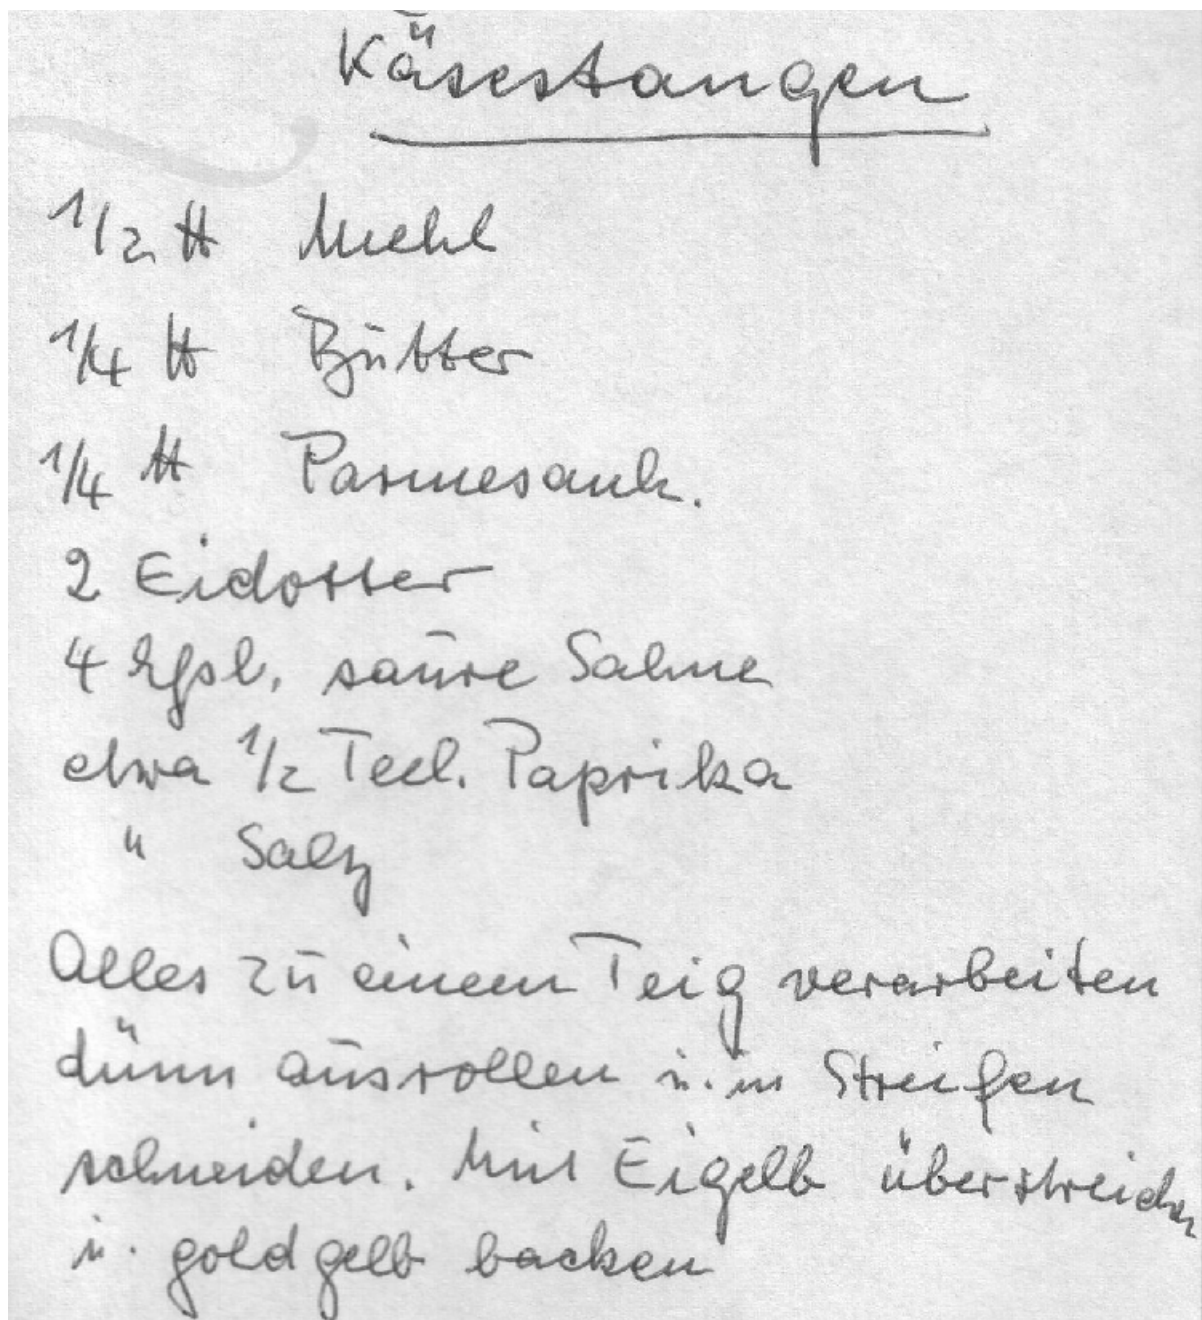 Käsestangen
1/2 ℔ Mehl
1/4 ℔ Butter
1/4 ℔ Parmesank.
2 Eidotter
4 Eßl. saure Sahne
etwa 1/2 Teel. Paprika
" Salz
Alles zu einem Teig verarbeiten
dünn ausrollen u. in Streifen
schneiden. Mit Eigelb überstreichen
u. goldgelb backen